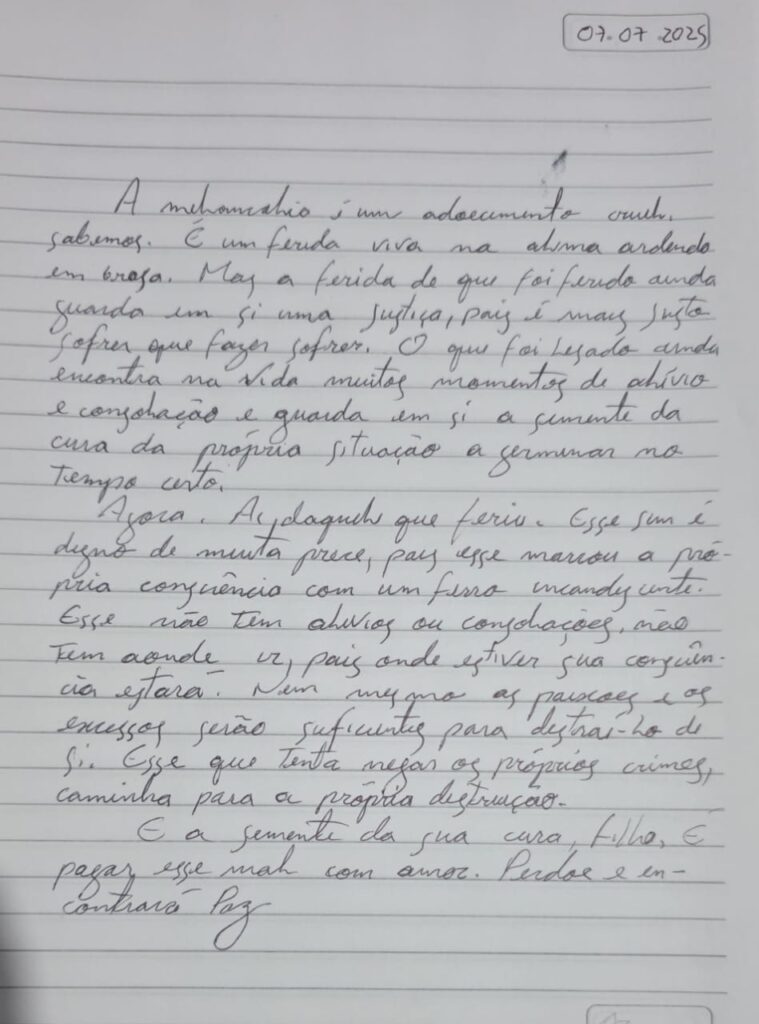 07.07.2025
A melancolia é um adoecimento cruel,
sabemos. É um ferida viva na alma ardendo
em brasa. Mas a ferida de que foi ferido ainda
guarda em si uma justiça, pois é mais justo
sofrer que fazer sofrer. O que foi lesado ainda
encontra na vida muitos momentos de alívio
e consolação e guarda em si a semente da
cura da própria situação a germinar no
tempo certo.
Agora. Ai, daquele que feriu. Esse sim é
digno de muita prece, pois esse marcou a pró-
pria consciência com um ferro incandescente.
Esse não tem alívios ou consolações, não
tem aonde ir, pois onde estiver sua consciên-
cia estará. Nem mesmo as paixoes e os
excessos serão suficientes para distraí-lo de
si. Esse que tenta negar os próprios crimes,
caminha para a própria destruição.
E a semente da sua cura, filho, É
pagar esse mal com amor. Perdoe e en-
contrará Paz